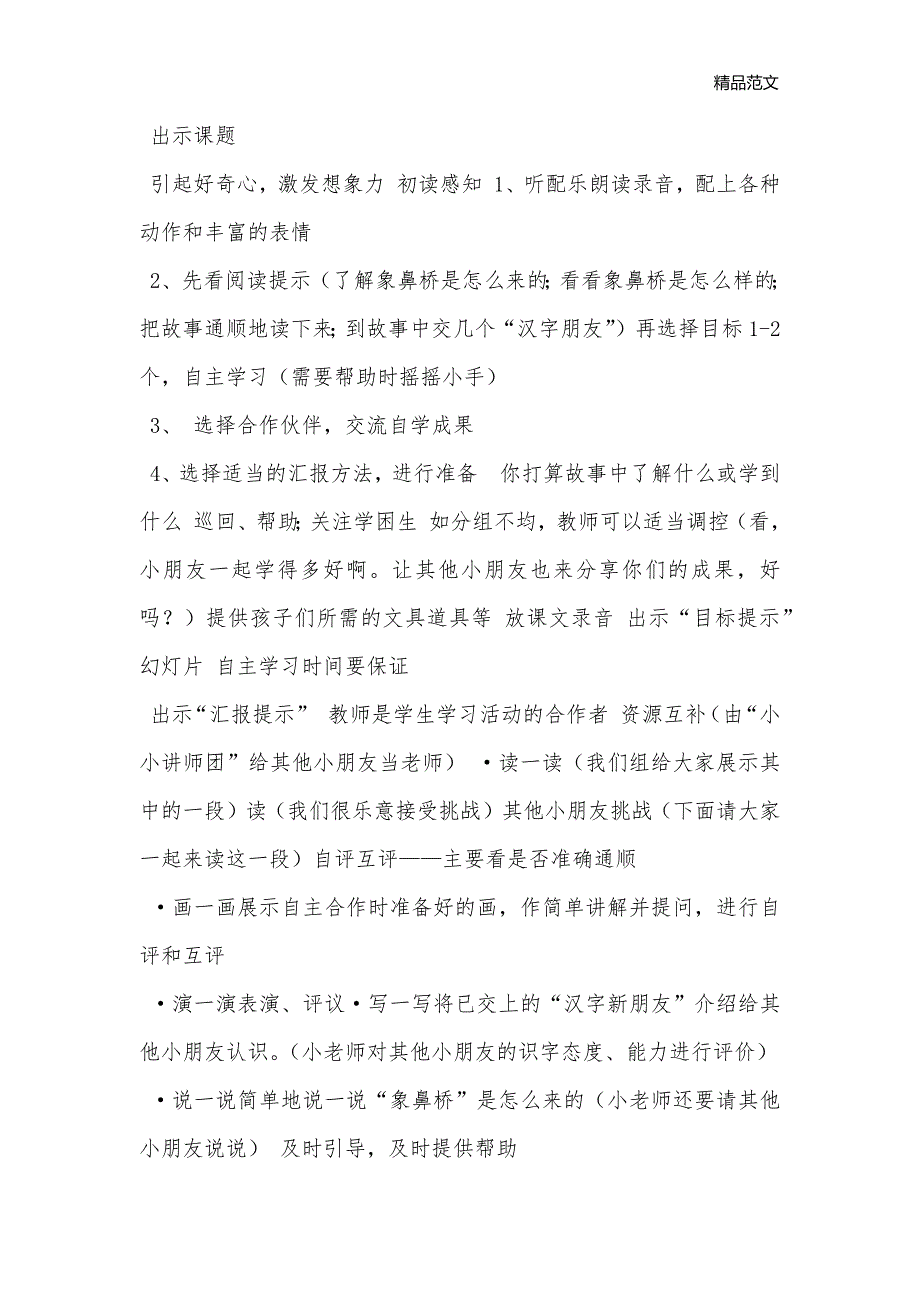 精品范文
出示课题
引起好奇心，激发想象力 初读感知 1、听配乐朗读录音，配上各种
动作和丰富的表情
2、先看阅读提示（了解象鼻桥是怎么来的；看看象鼻桥是怎么样的；
把故事通顺地读下来；到故事中交几个“汉字朋友”）再选择目标 1-2
个，自主学习（需要帮助时摇摇小手）
3、 选择合作伙伴，交流自学成果
4、选择适当的汇报方法，进行准备 你打算故事中了解什么或学到
什么 巡回、帮助；关注学困生 如分组不均，教师可以适当调控（看，
小朋友一起学得多好啊。让其他小朋友也来分享你们的成果，好
吗？）提供孩子们所需的文具道具等 放课文录音 出示“目标提示”
幻灯片 自主学习时间要保证
出示“汇报提示” 教师是学生学习活动的合作者 资源互补（由“小
小讲师团”给其他小朋友当老师） •读一读（我们组给大家展示其
中的一段）读（我们很乐意接受挑战）其他小朋友挑战（下面请大家
一起来读这一段）自评互评——主要看是否准确通顺
•画一画展示自主合作时准备好的画，作简单讲解并提问，进行自
评和互评
•演一演表演、评议•写一写将已交上的“汉字新朋友”介绍给其
他小朋友认识。（小老师对其他小朋友的识字态度、能力进行评价）
•说一说简单地说一说“象鼻桥”是怎么来的（小老师还要请其他
小朋友说说） 及时引导，及时提供帮助